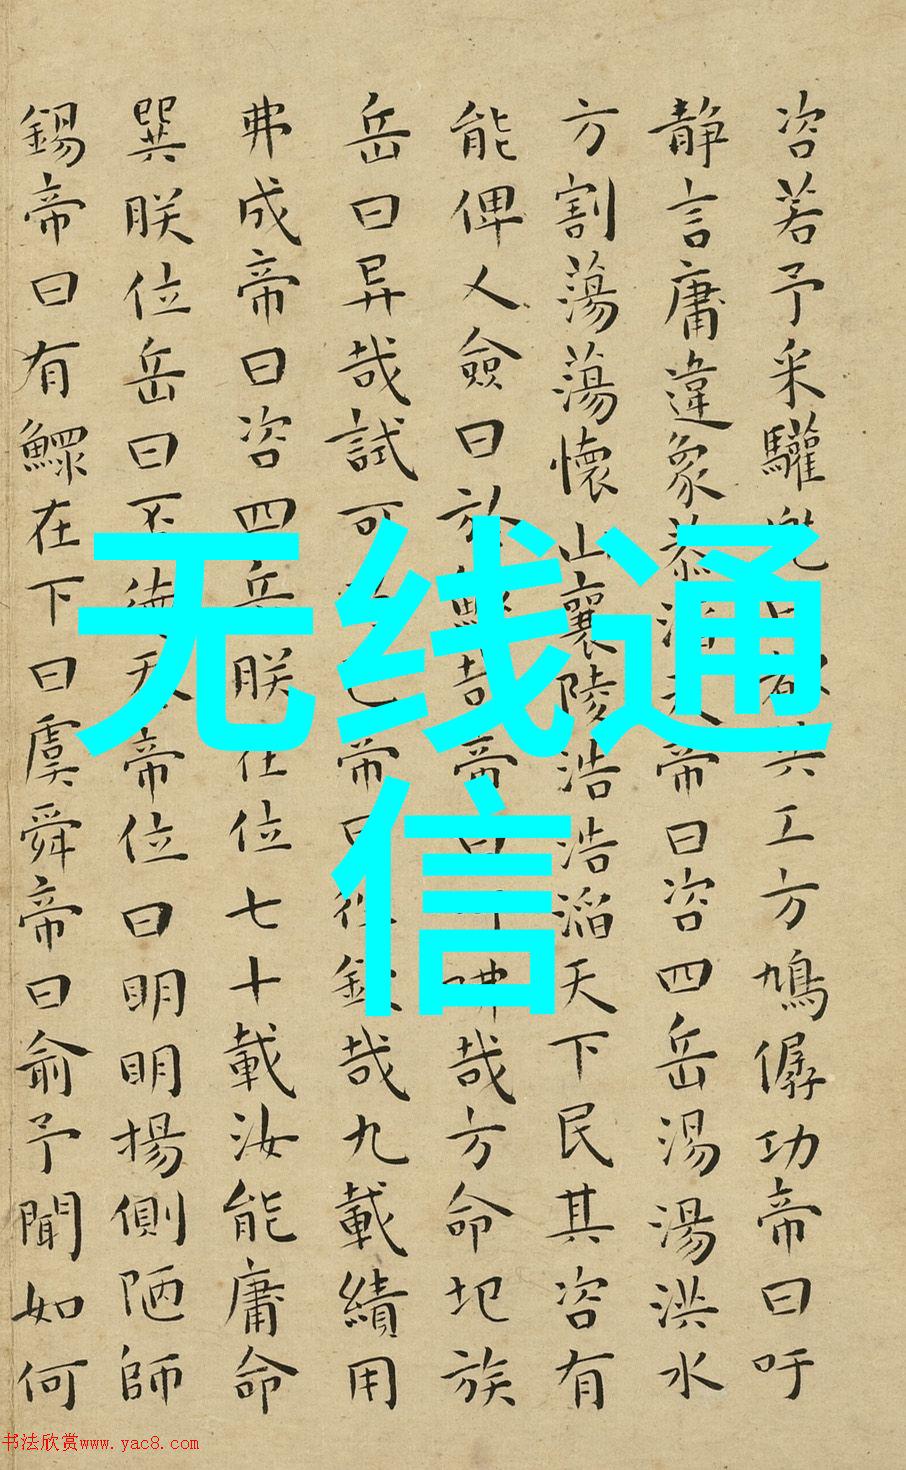 咨若予采驩兜共工方鳩僝功帝曰吁
静言庸違象恭滔天帝曰咨四岳湯湯洪水
方割蕩蕩懷山襄陵浩浩滔天下民其咨有
能俾乂僉曰於鯀哉帝曰咈哉方命圮族
岳曰异哉試可已帝曰往欽哉九載績用
弗成帝曰咨四岳朕在位七十載汝能庸命
巽朕位岳曰否德忝帝位曰明明揚側陋師
錫帝曰有鰥在下曰虞舜帝曰俞予聞如何
无线通
信
书法欣赏www.yac8.com